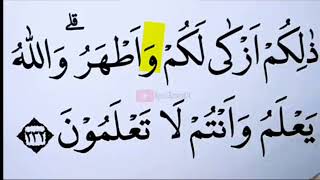 ذٰلِكُمْ اَزْكٰى لَكُمْ وَاَطْهَرُ ۗ وَاللّٰهُ
يَعْلَمُ وَاَنْتُمْ لَا تَعْلَمُوْنَ ﴿٢٣٢﴾